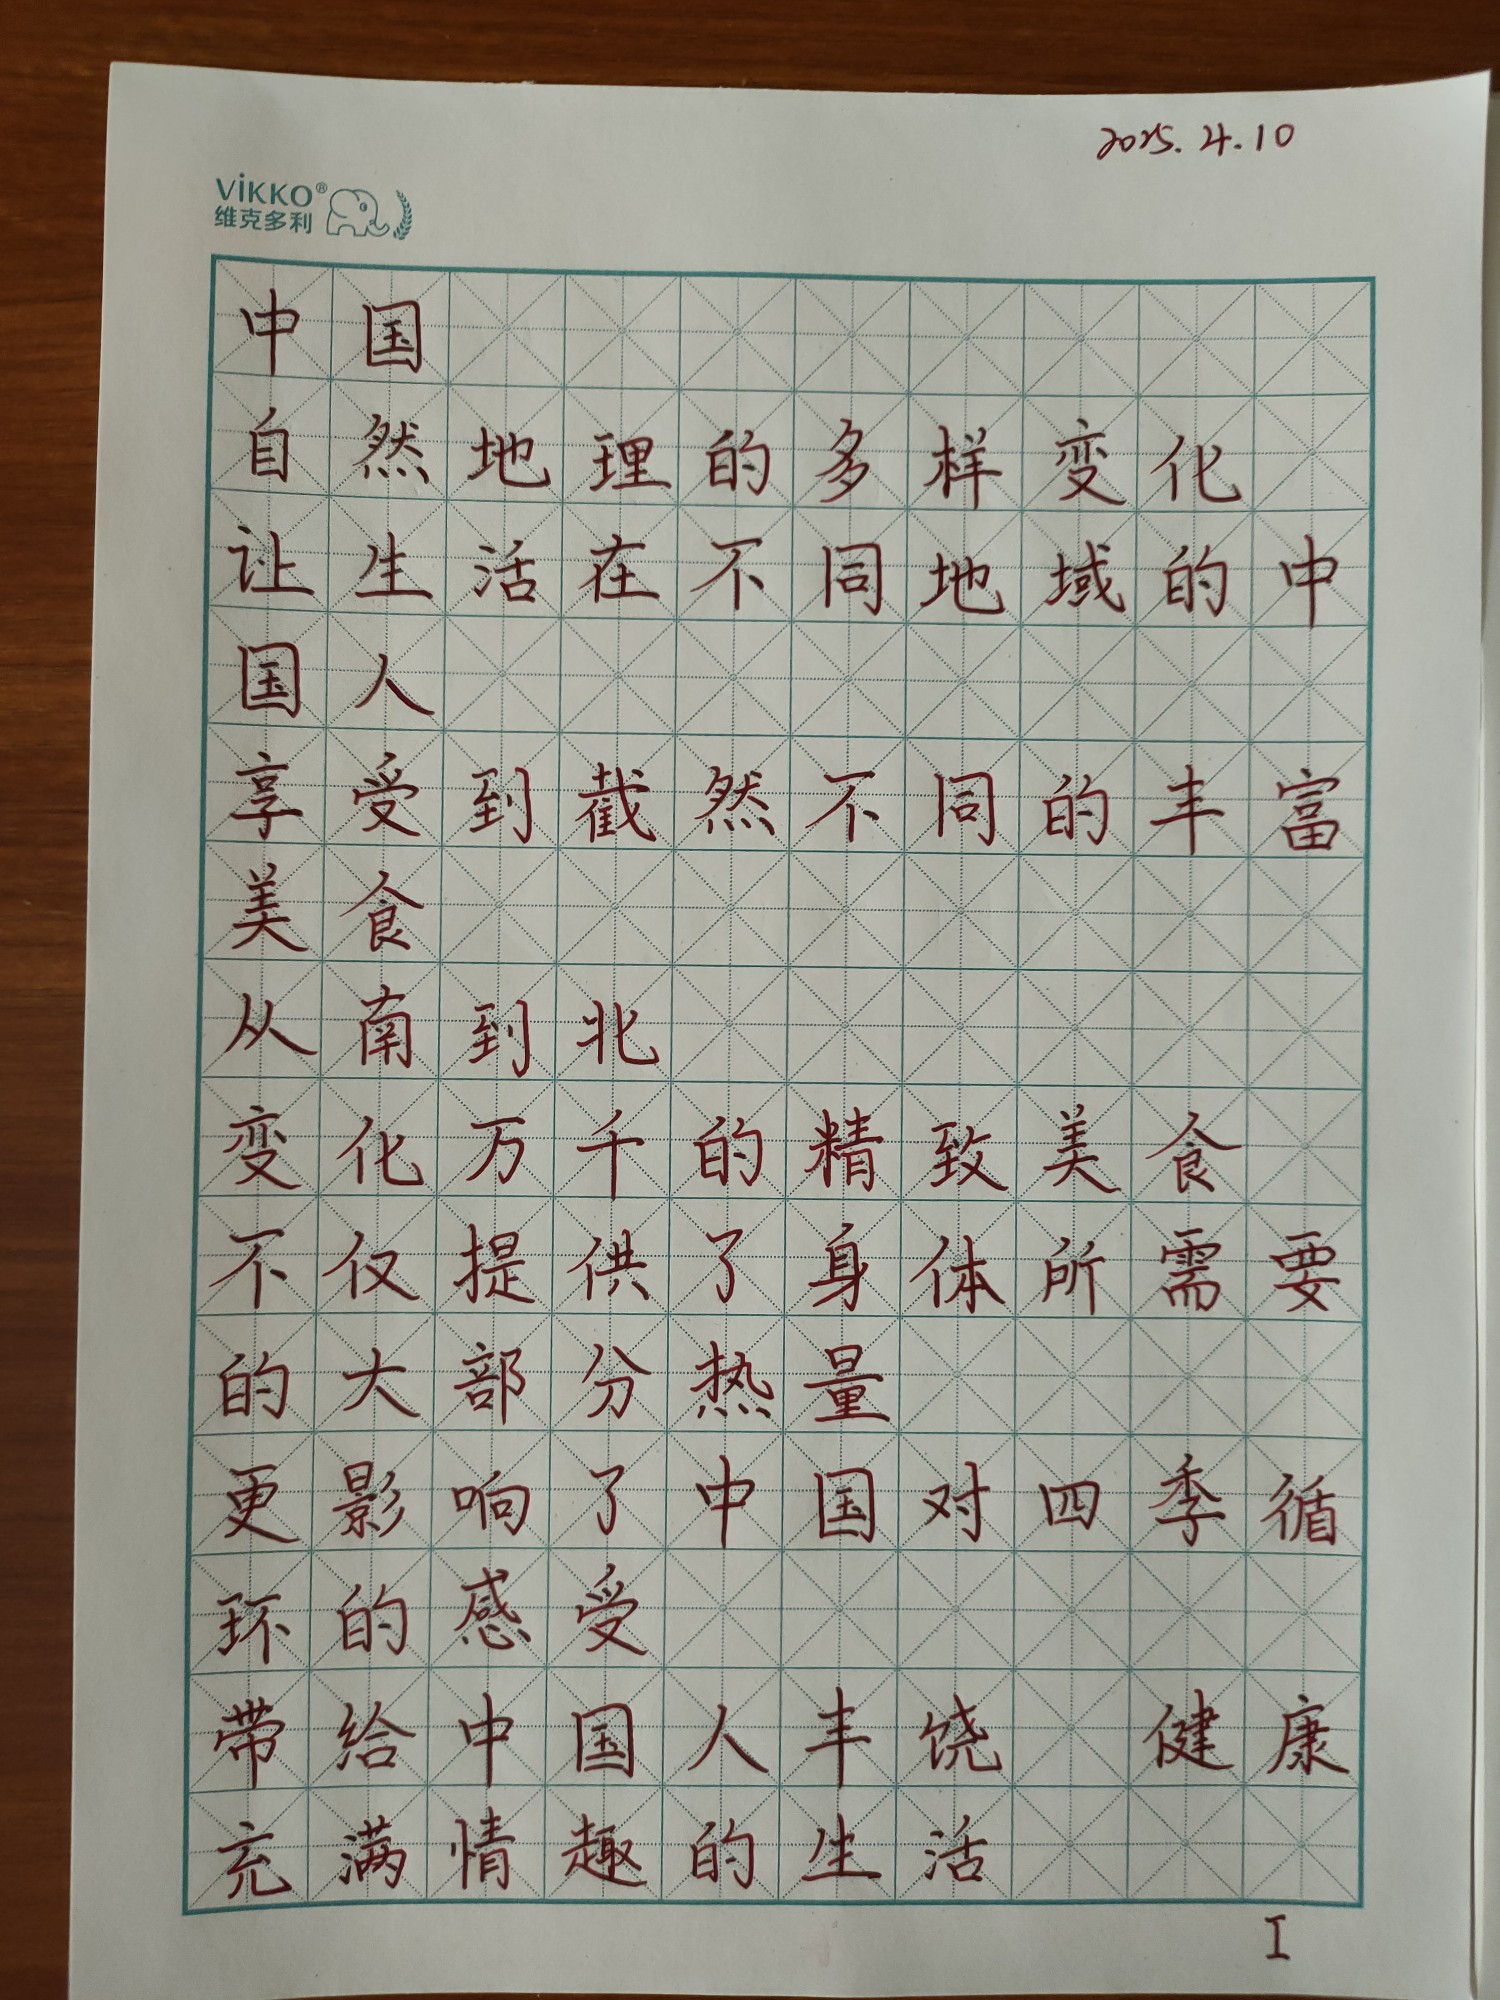 2025.4.10
ViKKO®
维克多利
中国
自然地理的多样变化
让生活在不同地域的中
国人
享受到截然不同的丰富
美食
从南到北
变化万千的精致美食
不仅提供了身体所需要
的大部分热量
更影响了中国对四季循
环的感受
带给中国人丰饶 健康
充满情趣的生活
I